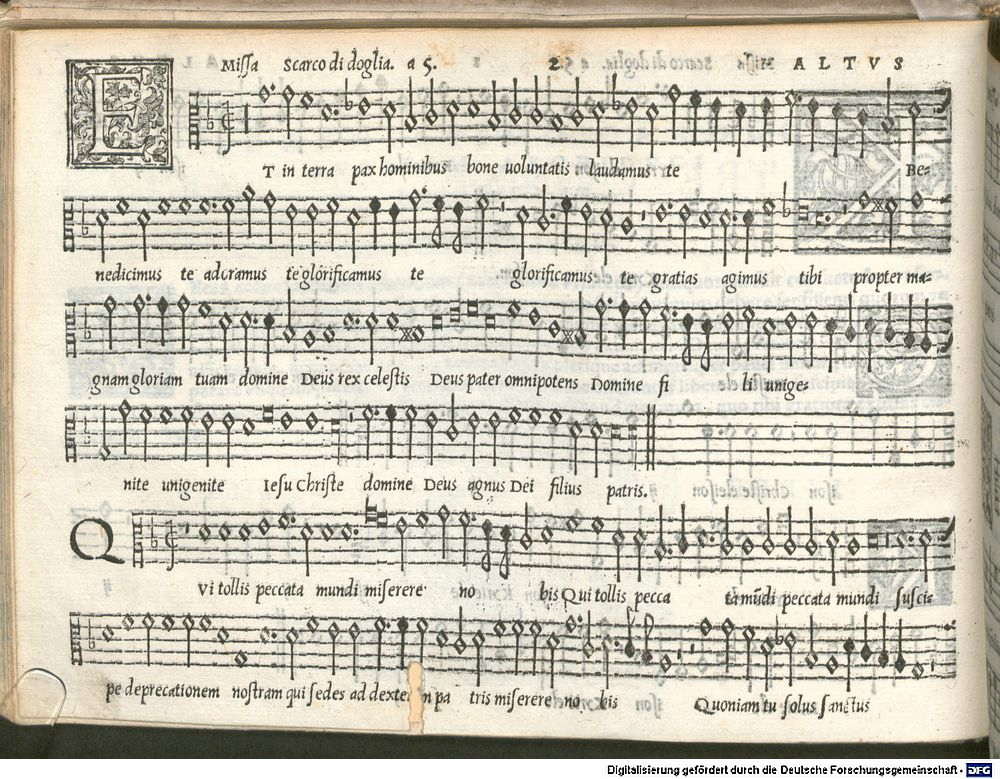 Missa Scarco di doglia. a 5. 2 ALTVS
ET in terra pax hominibus bone uoluntatis laudamus te Be-
nedicimus te adoramus te glorificamus te glorificamus te gratias agimus tibi propter ma-
gnam gloriam tuam domine Deus rex celestis Deus pater omnipotens Domine fi li unige-
nite unigenite Iesu Christe domine Deus agnus Dei filius patris.
QVi tollis peccata mundi miserere no bis Qui tollis pecca ta mūdi peccata mundi susci-
pe deprecationem nostram qui sedes ad pa tris miserere no bis Quoniam tu solus sanctus
Digitalisierung gefördert durch die Deutsche Forschungsgemeinschaft - DFG